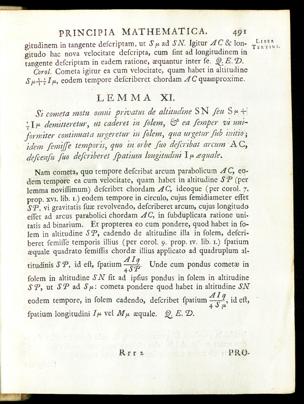 PRINCIPIA MATHEMATICA. 491
LIBER
TERTIUS.
gitudinem in tangente deſcriptam, ut Sμ ad SN. Igitur AC & lon-
gitudo hac nova velocitate deſcripta, cum ſint ad longitudinem in
tangente deſcriptam in eadem ratione, æquantur inter ſe. Q. E. D.
Corol. Cometa igitur ea cum velocitate, quam habet in altitudine
Sμ+⅔Iμ, eodem tempore deſcriberet chordam AC quamproxime.
LEMMA XI.
Si cometa motu omni privatus de altitudine SN ſeu Sμ+
⅓Iμ demitteretur, ut caderet in ſolem, & ea ſemper vi uni-
formiter continuata urgeretur in ſolem, qua urgetur ſub initio;
idem ſemiſſe temporis, quo in orbe ſuo deſcribat arcum AC,
deſcenſu ſuo deſcriberet ſpatium longitudini Iμ æquale.
Nam cometa, quo tempore deſcribat arcum parabolicum AC, eo-
dem tempore ea cum velocitate, quam habet in altitudine SP (per
lemma noviſſimum) deſcribet chordam AC, ideoque (per corol. 7.
prop. XVI. lib. I.) eodem tempore in circulo, cujus ſemidiameter eſſet
SP, vi gravitatis ſuæ revolvendo, deſcriberet arcum, cujus longitudo
eſſet ad arcus parabolici chordam AC, in ſubduplicata ratione uni-
tatis ad binarium. Et propterea eo cum pondere, quod habet in ſo-
lem in altitudine SP, cadendo de altitudine illa in ſolem, deſcri-
beret ſemiſſe temporis illius (per corol. 9. prop. IV. lib. I.) ſpatium
æquale quadrato ſemiſſis chordæ illius applicato ad quadruplum al-
titudinis SP, id eſt, ſpatium AIq/4SP. Unde cum pondus cometæ in
ſolem in altitudine SN ſit ad ipſius pondus in ſolem in altitudine
SP, ut SP ad Sμ: cometa pondere quod habet in altitudine SN
eodem tempore, in ſolem cadendo, deſcribet ſpatium AIq/4Sμ, id eſt,
ſpatium longitudini Iμ vel Mμ æquale. Q. E. D.
Rrr 2 PRO-